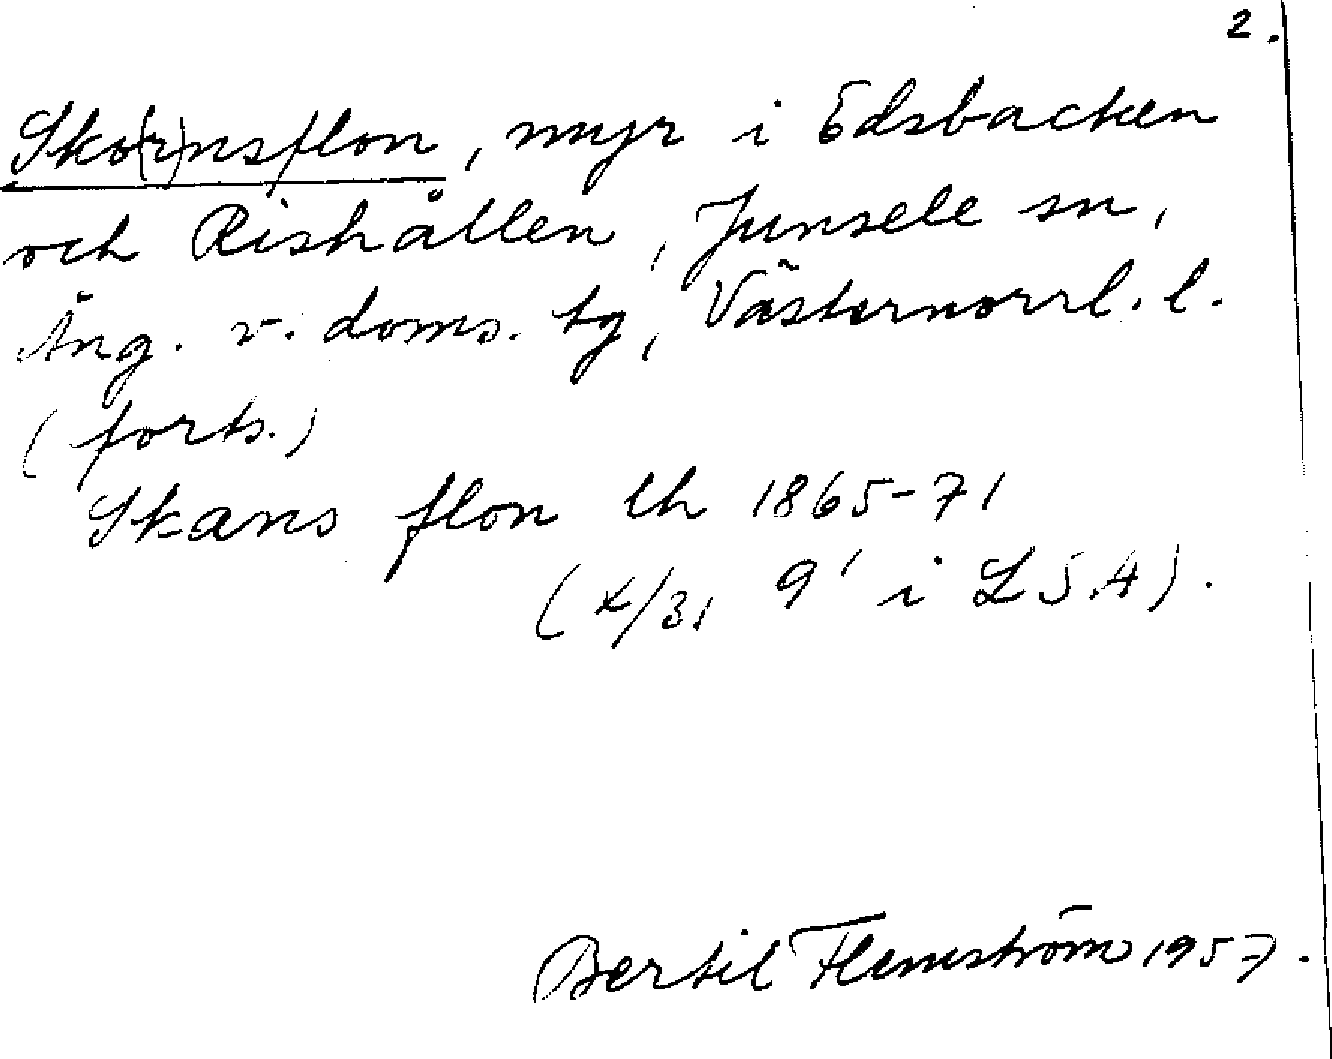 2.
Sko(r)nsflon, myr i Edsbacken
och Rishållen, Junsele sn,
Ång. v. doms. tg, Västernorrl. l.
(forts.)
Skans flon lh 1865-71
(X/31 9' i LSA).
Bertil Flemström 1957.